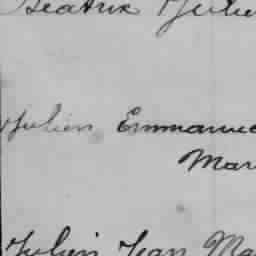 Beatrix Julie
Julien Emmanue
Mar
Julien Jean Ma